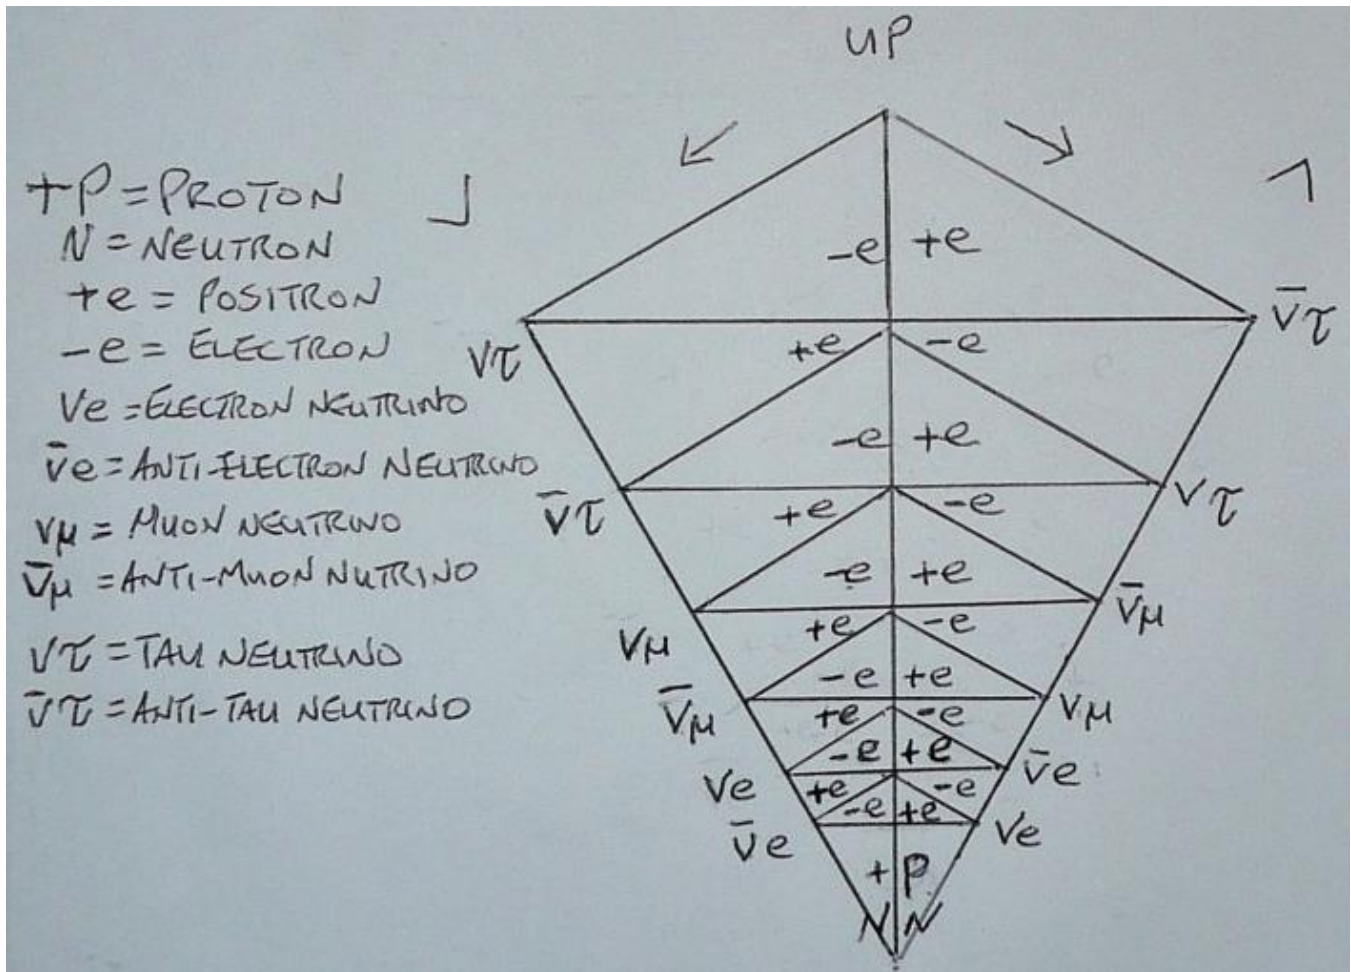 UP
+P = PROTON
N = NEUTRON
+e = POSITRON
-e = ELECTRON
Ve = ELECTRON NEUTRINO
V̄e = ANTI-ELECTRON NEUTRINO
Vμ = MUON NEUTRINO
V̄μ = ANTI-MUON NUTRINO
Vτ = TAU NEUTRINO
V̄τ = ANTI-TAU NEUTRINO
-e +e
Vτ V̄τ
+e -e
-e +e
V̄τ Vτ
+e -e
-e +e
Vμ V̄μ
+e -e
-e +e
V̄μ Vμ
+e -e
-e +e
Ve V̄e
+e -e
-e +e
V̄e Ve
+P
N N